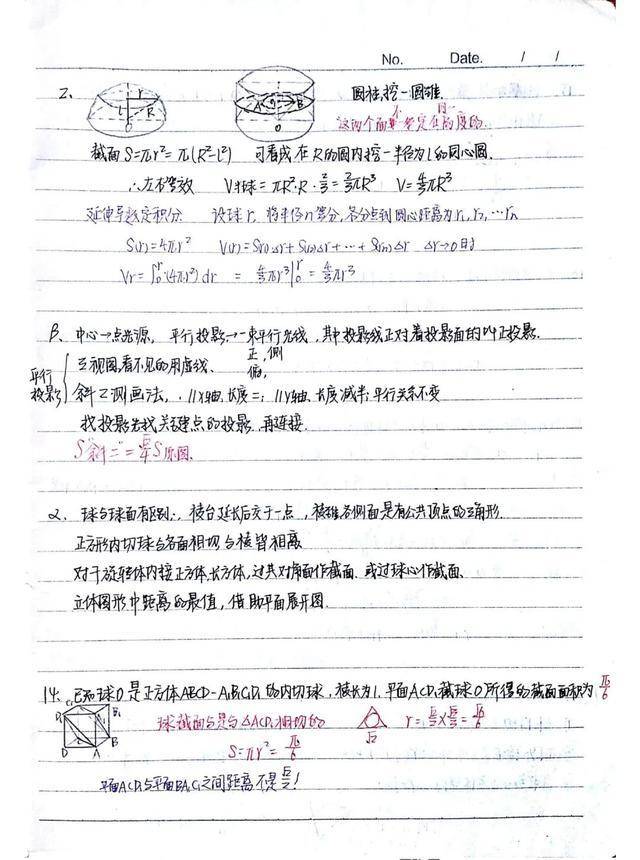 No. Date. / /
2、 r l R O A B O 圆柱挖一圆锥
这两个面不一定在同高度的.
截面S=πr²=π(R²-l²) 可看成在R的圆内挖一半径为l的同心圆.
∴左右等效 V半球=πR²·R·2/3=2/3πR³ V=4/3πR³
延伸导数定积分 设球r, 将半径n等分,各分点到圆心距离为r₁,r₂,…rₙ
S(r)=4πr² V(r)=S(r₁)Δr+S(r₂)Δr+…+S(rₙ)Δr Δr→0时
Vr=∫₀ʳ(4πr²)dr = 4/3πr³|₀ʳ=4/3πr³
β、中心→点光源, 平行投影→一束平行光线,其中投影线正对着投影面的叫正投影.
平行投影 { 三视图,看不见的用虚线、 正,侧 俯,
斜二测画法, . //x轴,长度=; //y轴、长度减半;平行关系不变
找投影先找关键点的投影,再连接.
S"斜二"=√2/4 S原图.
α、球与球面有区别:、棱台延长后交于一点,棱锥各侧面是有公共顶点的三角形.
正方形内切球与各面相切与棱皆相离
对于旋转体内接正方体,长方体,过其对角面作截面、或过球心作截面、
立体图形中距离的最值,借助平面展开图.
14:已知球O是正方体ABCD-A₁B₁C₁D₁的内切球,棱长为1.平面ACD₁截球O所得的截面面积为 π/6
C₁ B₁ D₁ B D A 球截面与是与△ACD₁相切的 √2 r=√2/2×√3/3=√6/6
S=πr²=π/6
平面ACD₁与平面BA₁C₁之间距离不是√2/2!